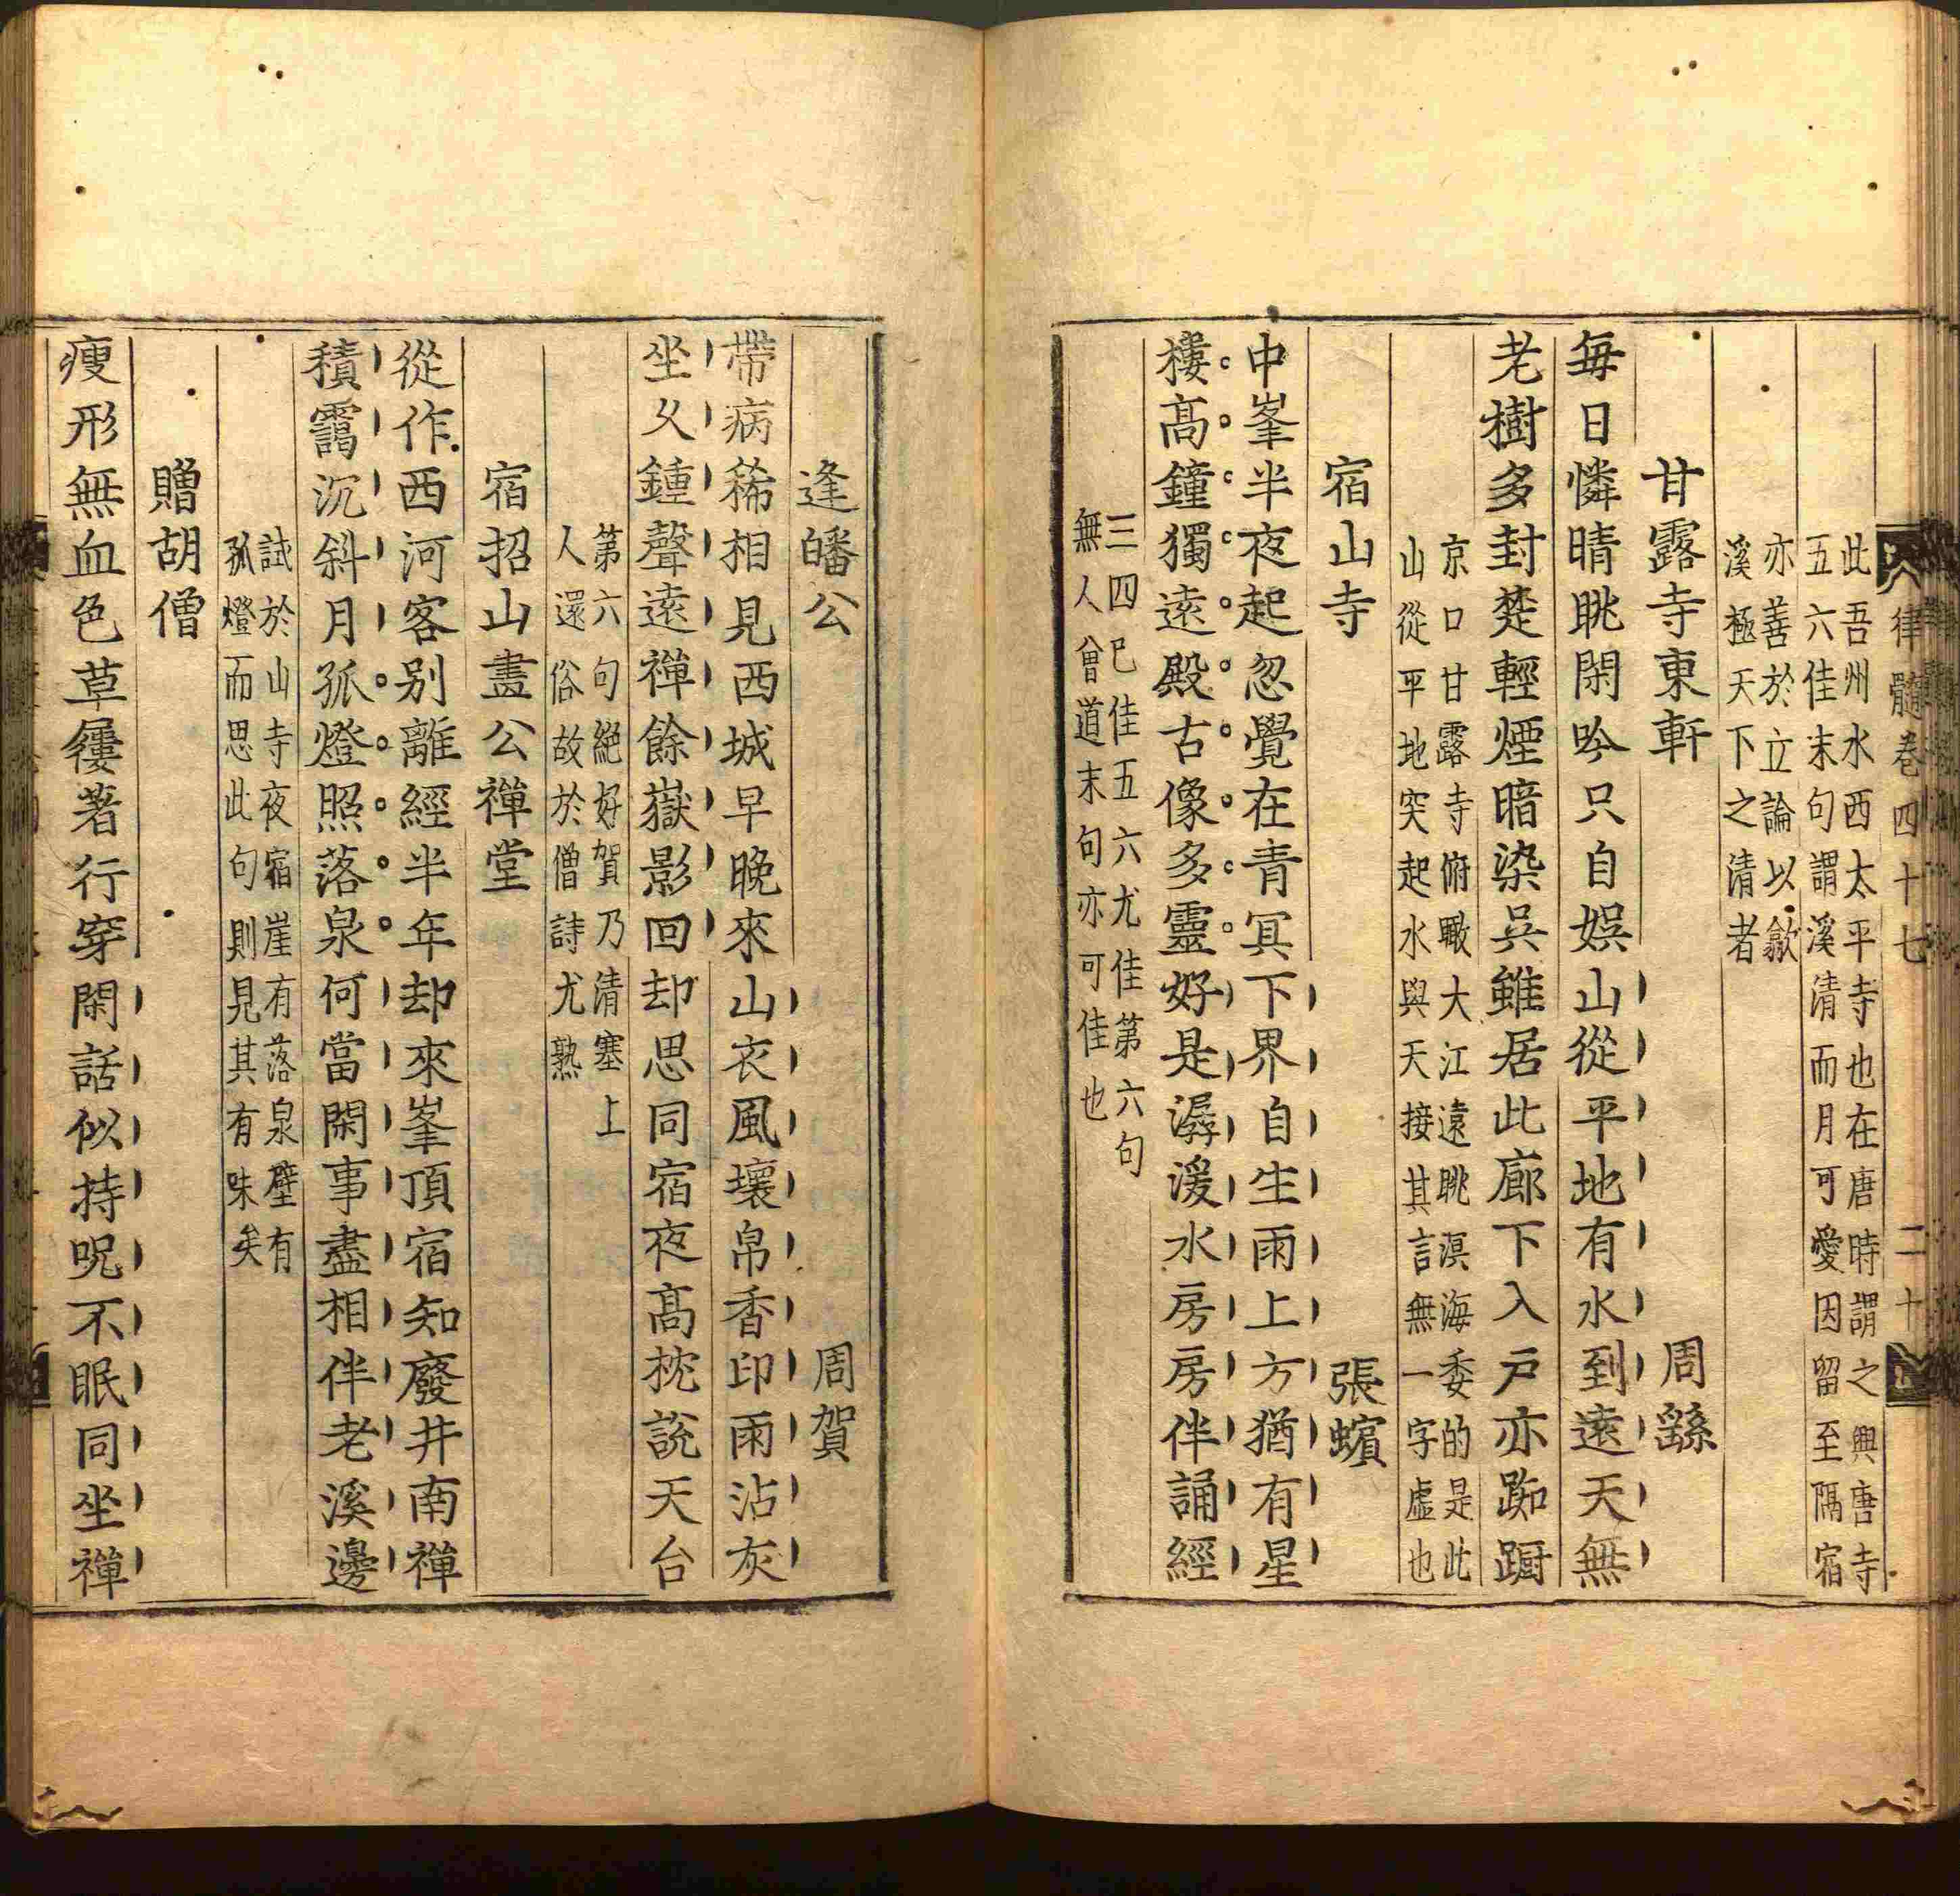 律髓卷四十七 二十
此吾州水西太平寺也在唐時謂之興唐寺
五六佳末句謂溪清而月可愛因留至隔宿
亦善於立論以歙
溪極天下之清者
甘露寺東軒 周繇
每日憐晴眺閑吟只自娛山從平地有水到遠天無
老樹多封楚輕煙暗染吳雖居此廊下入戶亦踟躕
京口甘露寺俯瞰大江遠眺溟海委的是此
山從平地突起水與天接其言無一字虛也
宿山寺 張蠙
中峯半夜起忽覺在青冥下界自生雨上方猶有星
樓高鐘獨遠殿古像多靈好是潺湲水房房伴誦經
三四已佳五六尤佳第六句
無人曾道末句亦可佳也
逢皤公 周賀
帶病稀相見西城早晚來山衣風壞帛香印雨沾灰
坐久鍾聲遠禪餘嶽影回却思同宿夜高枕說天台
第六句絕好賀乃清塞上
人還俗故於僧詩尤熟
宿招山晝公禪堂
從作西河客別離經半年却來峯頂宿知廢井南禪
積靄沉斜月孤燈照落泉何當閑事盡相伴老溪邊
試於山寺夜宿崖有落泉壁有
孤燈而思此句則見其有味矣
贈胡僧
瘦形無血色草屨著行穿閑話似持呪不眠同坐禪